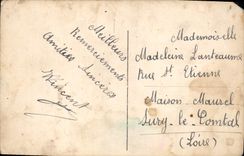 Meilleurs
Remerciements
Amitiés Sincères
Vincent
Mademoiselle
Madeleine Lanteaume
Rue St Etienne
Maison Maurel
Sury-le-Comtal
(Loire)